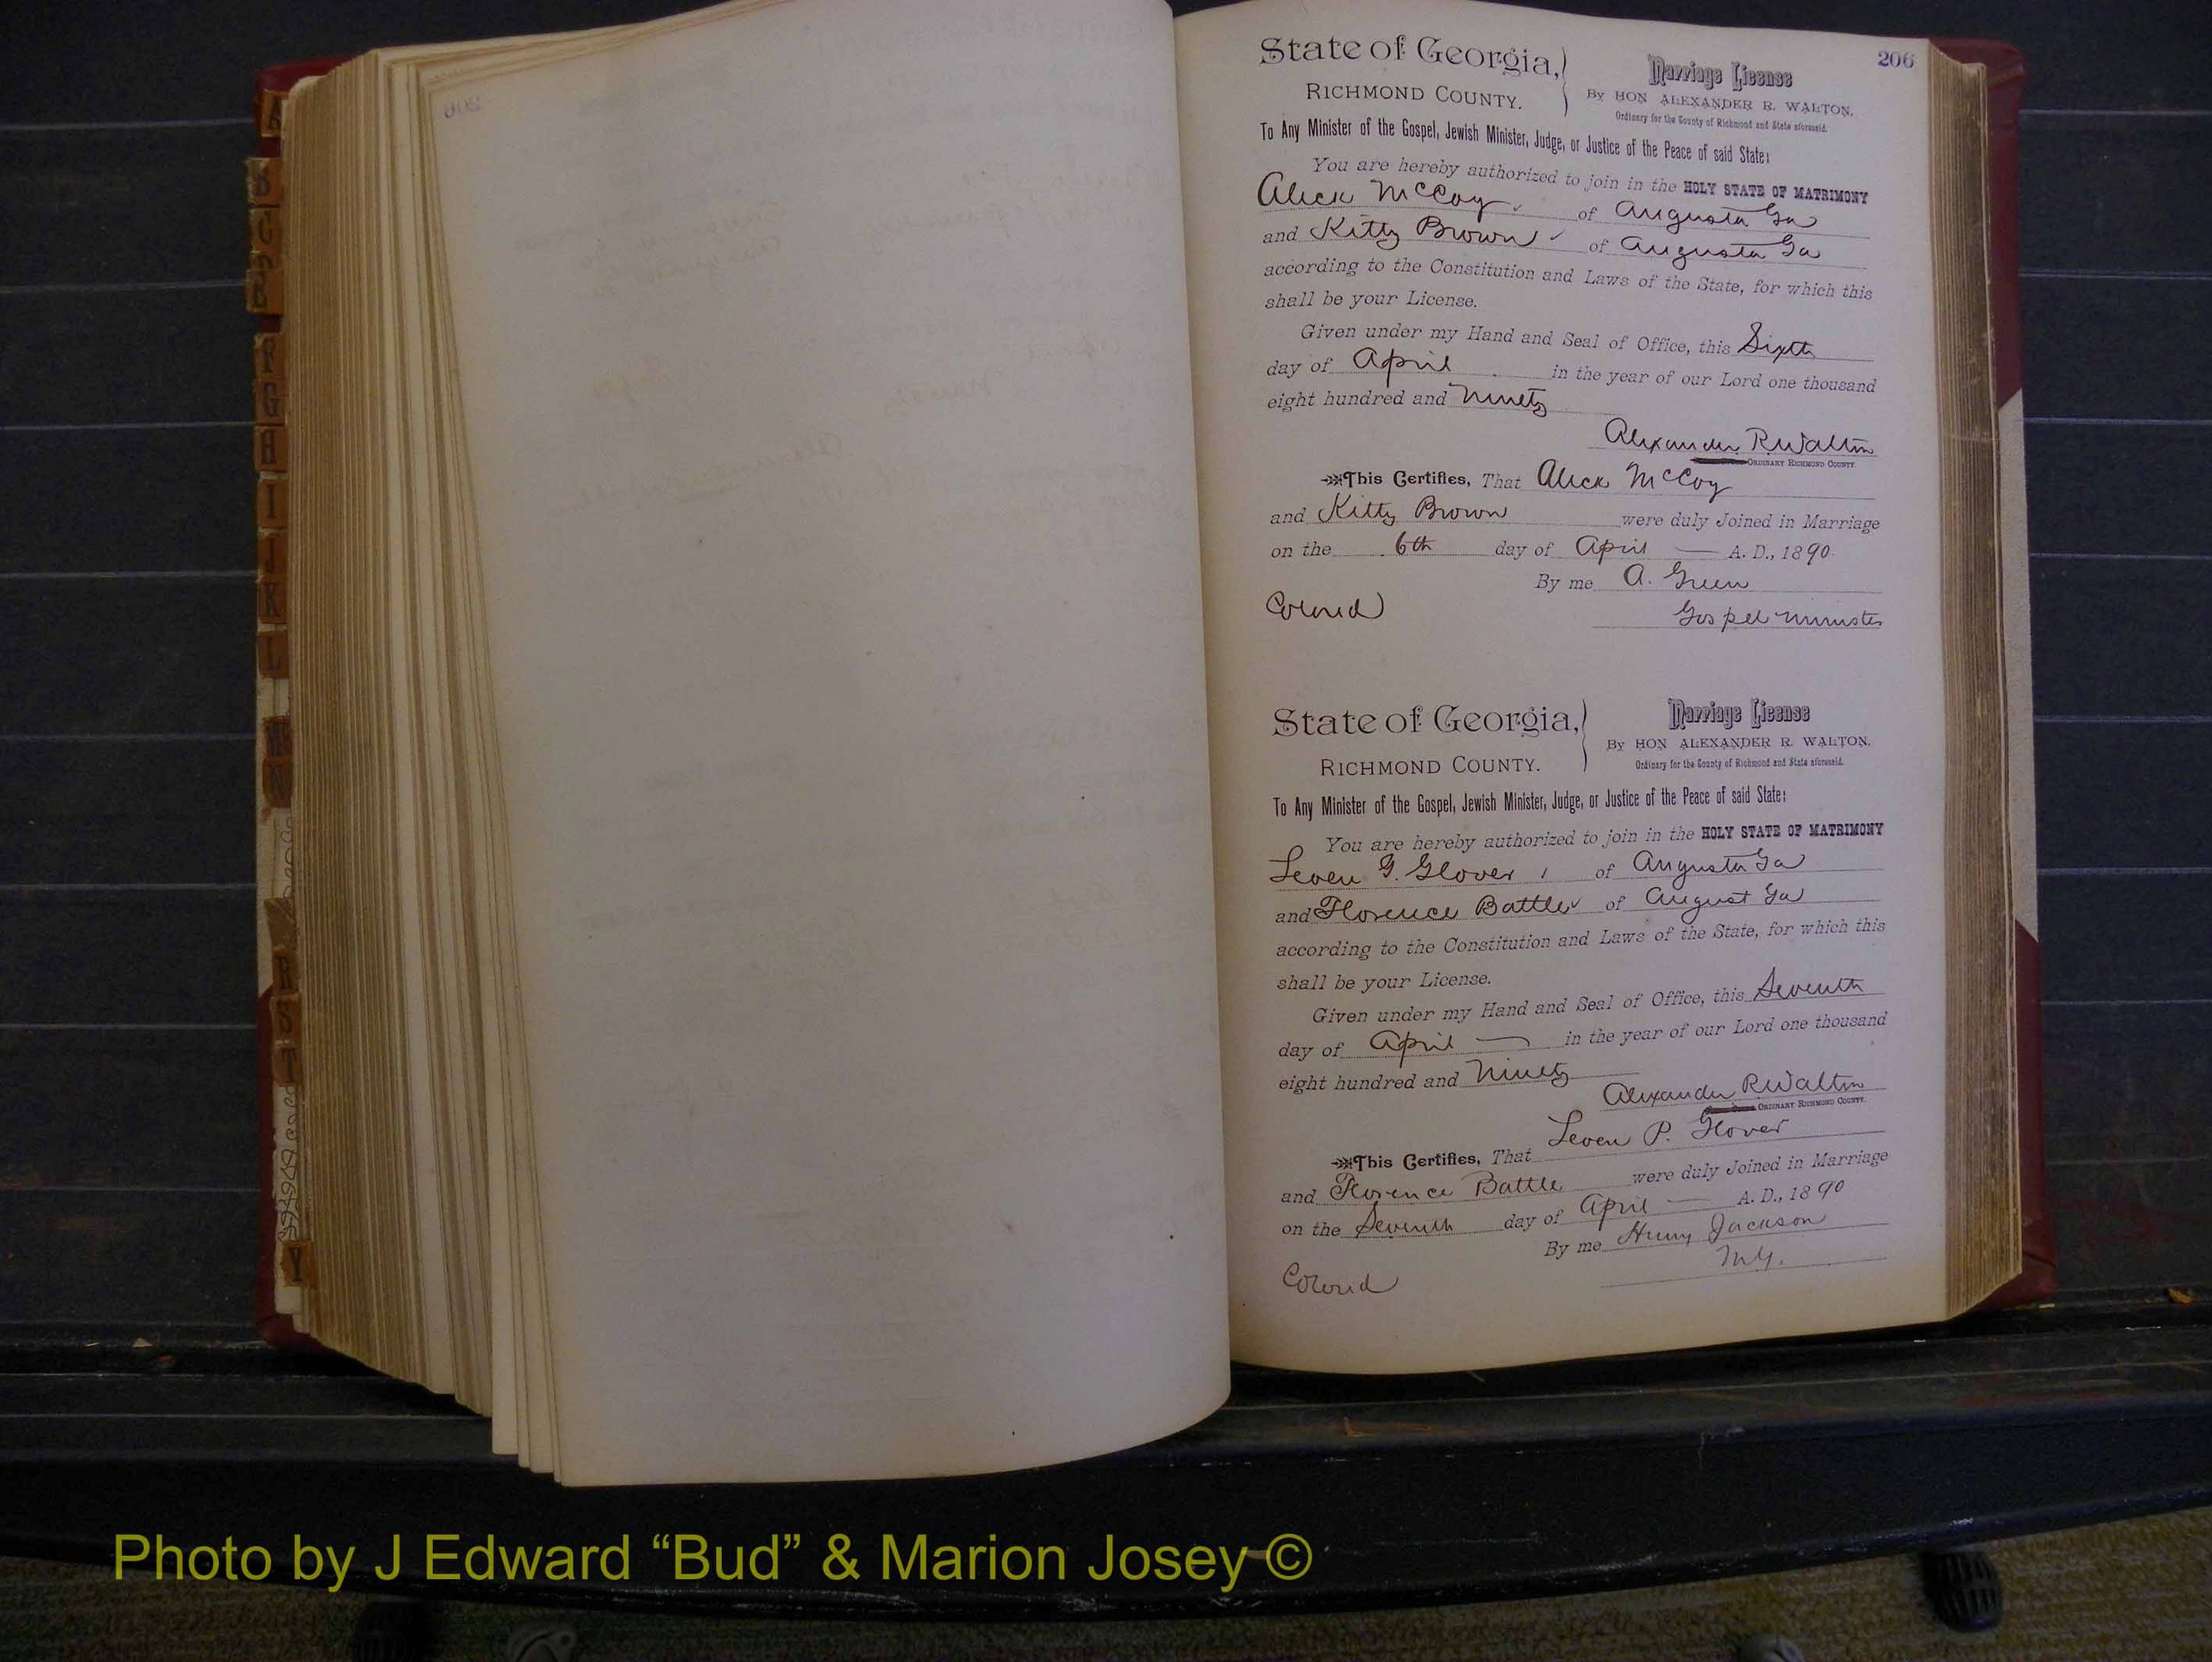 206
State of Georgia,
RICHMOND COUNTY.
Marriage License
By HON ALEXANDER R. WALTON,
Ordinary for the County of Richmond and State aforesaid.
To Any Minister of the Gospel, Jewish Minister, Judge, or Justice of the Peace of said State:
You are hereby authorized to join in the HOLY STATE OF MATRIMONY
Aleck McCoy of Augusta Ga
and Kitty Brown of Augusta Ga
according to the Constitution and Laws of the State, for which this
shall be your License.
Given under my Hand and Seal of Office, this Sixth
day of April in the year of our Lord one thousand
eight hundred and Ninety
Alexander R Walton
ORDINARY RICHMOND COUNTY.
This Certifies, That Aleck McCoy
and Kitty Brown were duly Joined in Marriage
on the 6th day of April A. D., 1890.
By me A. Green
Colored
Gospel Minister
State of Georgia,
RICHMOND COUNTY.
Marriage License
By HON ALEXANDER R. WALTON,
Ordinary for the County of Richmond and State aforesaid.
To Any Minister of the Gospel, Jewish Minister, Judge, or Justice of the Peace of said State:
You are hereby authorized to join in the HOLY STATE OF MATRIMONY
Leven G. Glover of Augusta Ga
and Florence Battle of August Ga
according to the Constitution and Laws of the State, for which this
shall be your License.
Given under my Hand and Seal of Office, this Seventh
day of April in the year of our Lord one thousand
eight hundred and Ninety
Alexander R Walton
ORDINARY RICHMOND COUNTY.
This Certifies, That Leven P. Glover
and Florence Battle were duly Joined in Marriage
on the Seventh day of April A. D., 1890
By me Henry Jackson
M.G.
Colored
Photo by J Edward “Bud” & Marion Josey ©